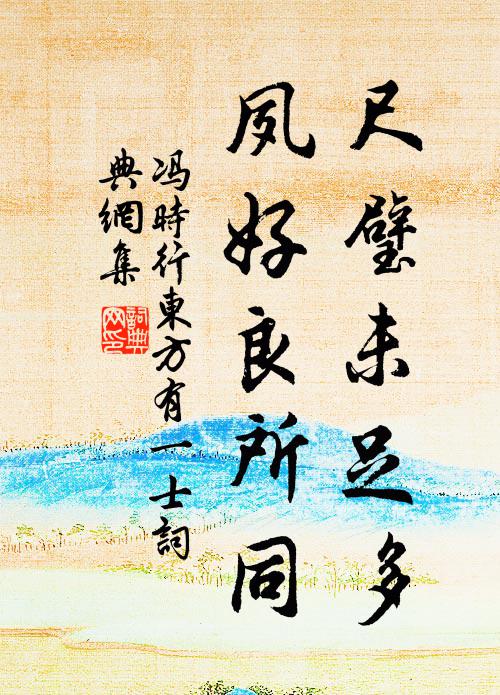 尺璧未足多
夙好良所同
冯時行東方有一士詞
典網集
詞典网印